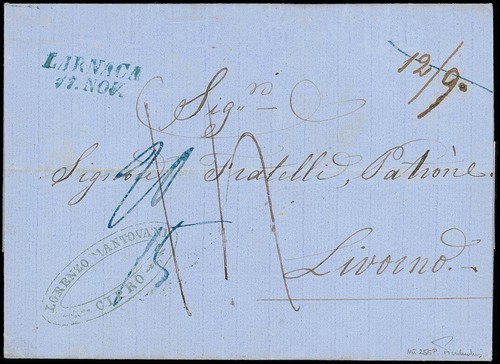 LARNACA
17. NOV.
12/9.
Sig.ri
Signori Fratelli Patrone
Livorno.
LORENZO MANTOVANI
CIPRO